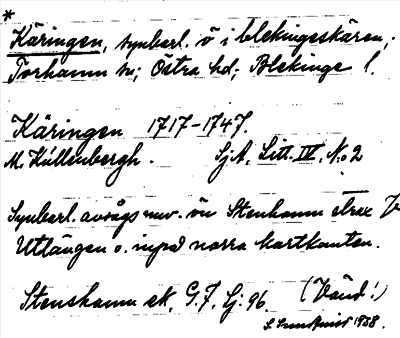 *
Käringen, synbarl. ö i blekingeskären,
Torhamn sn; Östra hd; Blekinge l.
Käringen 1717-1747.
M. Küllenbergh. SjA, Litt. IV, No 2
Synbarl. avsågs nuv. ön Stenhamn strax
Utlängen o. inpå norra kartkanten.
Stenshamn ek. G.7, Lj. 96 (Vänd!)
1958.